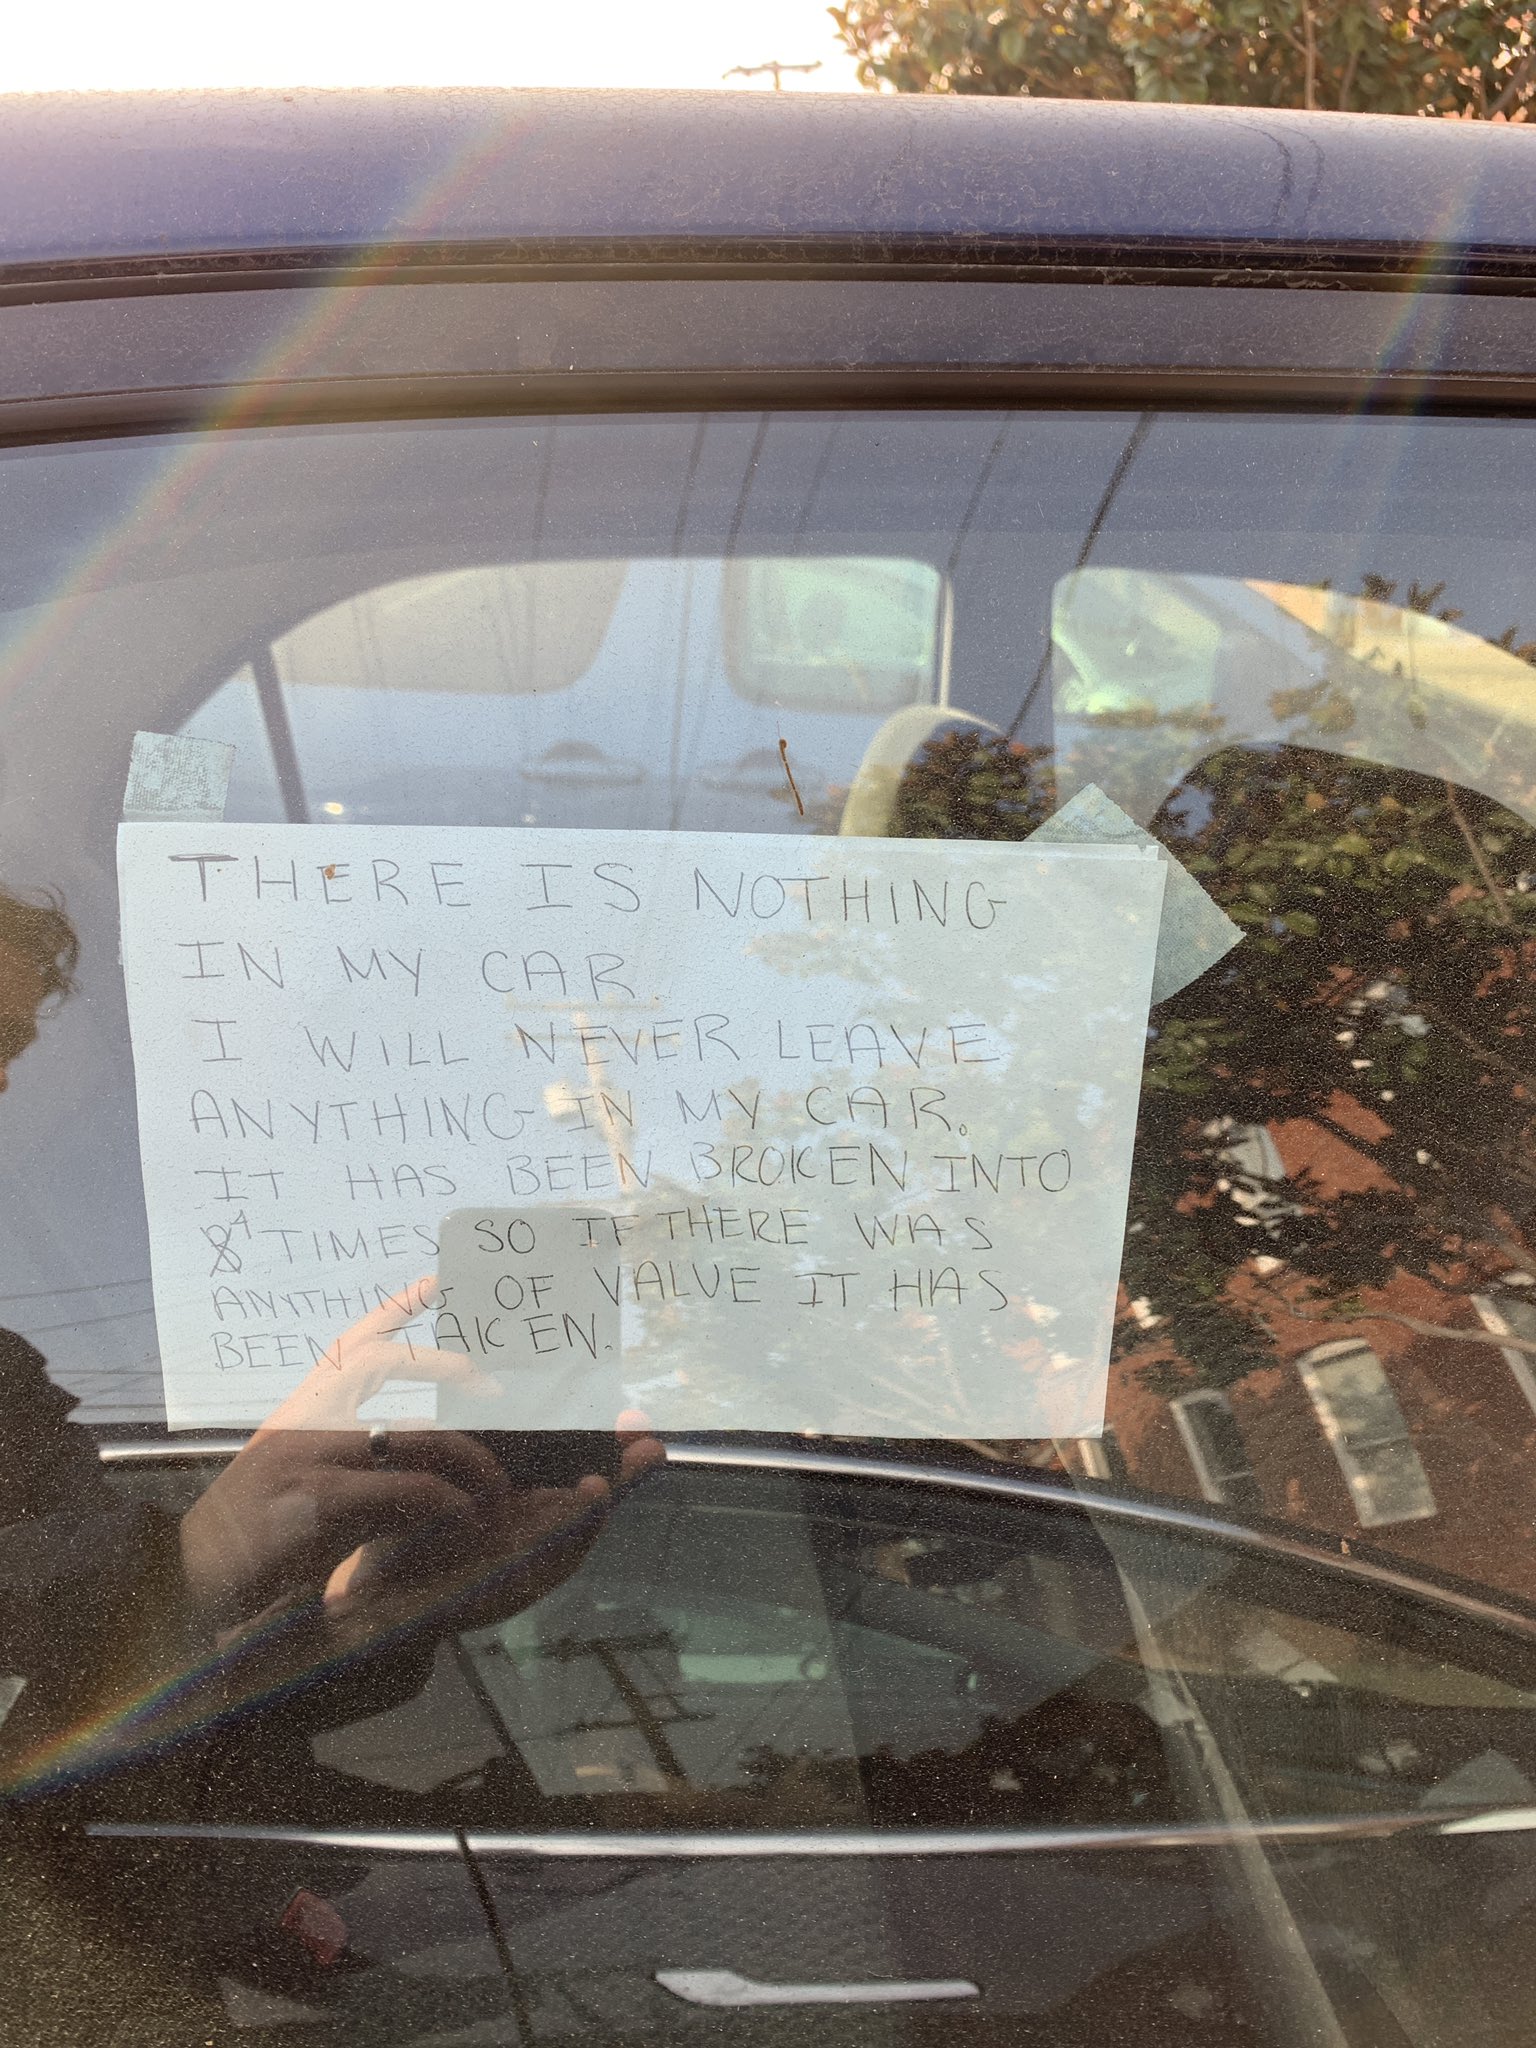 THERE IS NOTHING
IN MY CAR.
I WILL NEVER LEAVE
ANYTHING IN MY CAR.
IT HAS BEEN BROKEN INTO
TIMES SO IF THERE WAS
ANYTHING OF VALUE IT HAS
BEEN TAKEN.